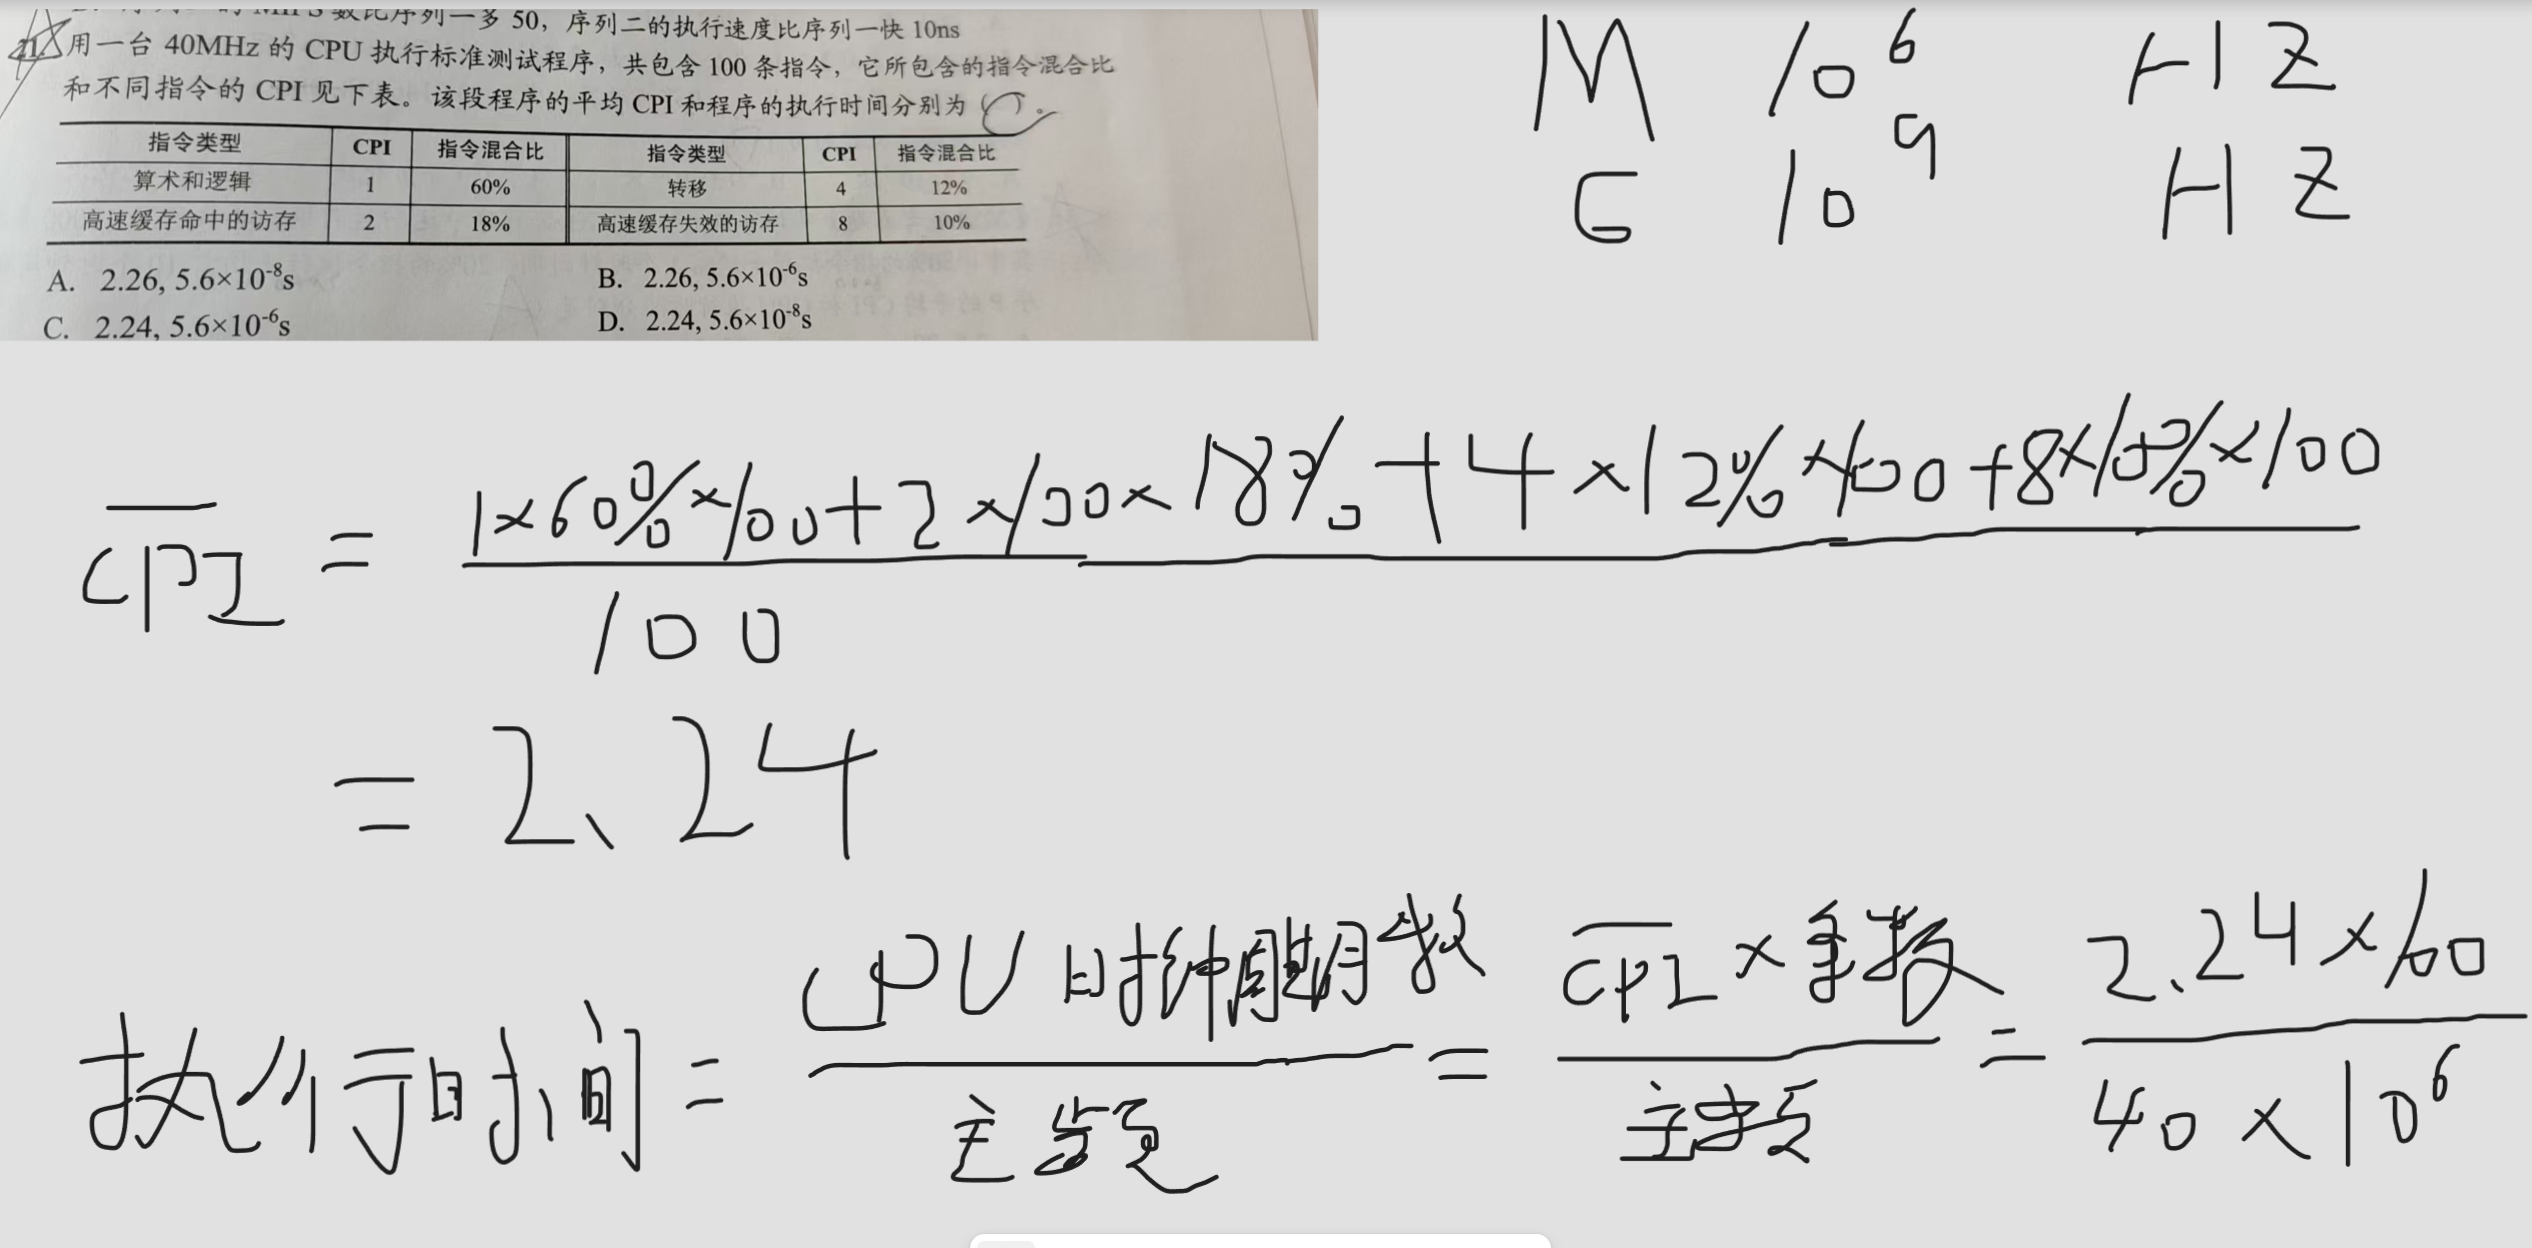 MIPS 数比序列一多 50，序列二的执行速度比序列一快 10ns
21. 用一台 40MHz 的 CPU 执行标准测试程序，共包含 100 条指令，它所包含的指令混合比
和不同指令的 CPI 见下表。该段程序的平均 CPI 和程序的执行时间分别为（ ）。
指令类型 CPI 指令混合比 指令类型 CPI 指令混合比
算术和逻辑 1 60% 转移 4 12%
高速缓存命中的访存 2 18% 高速缓存失效的访存 8 10%
A. 2.26, 5.6×10⁻⁸s B. 2.26, 5.6×10⁻⁶s
C. 2.24, 5.6×10⁻⁶s D. 2.24, 5.6×10⁻⁸s
M 10⁶ HZ
G 10⁹ HZ
CPI = 1×60%×100+2×100×18%+4×12%×100+8×10%×100
100
= 2、24
执行时间 = CPU时钟周期数 / 主频 = CPI × 条数 / 主频 = 2、24×100 / 40×10⁶